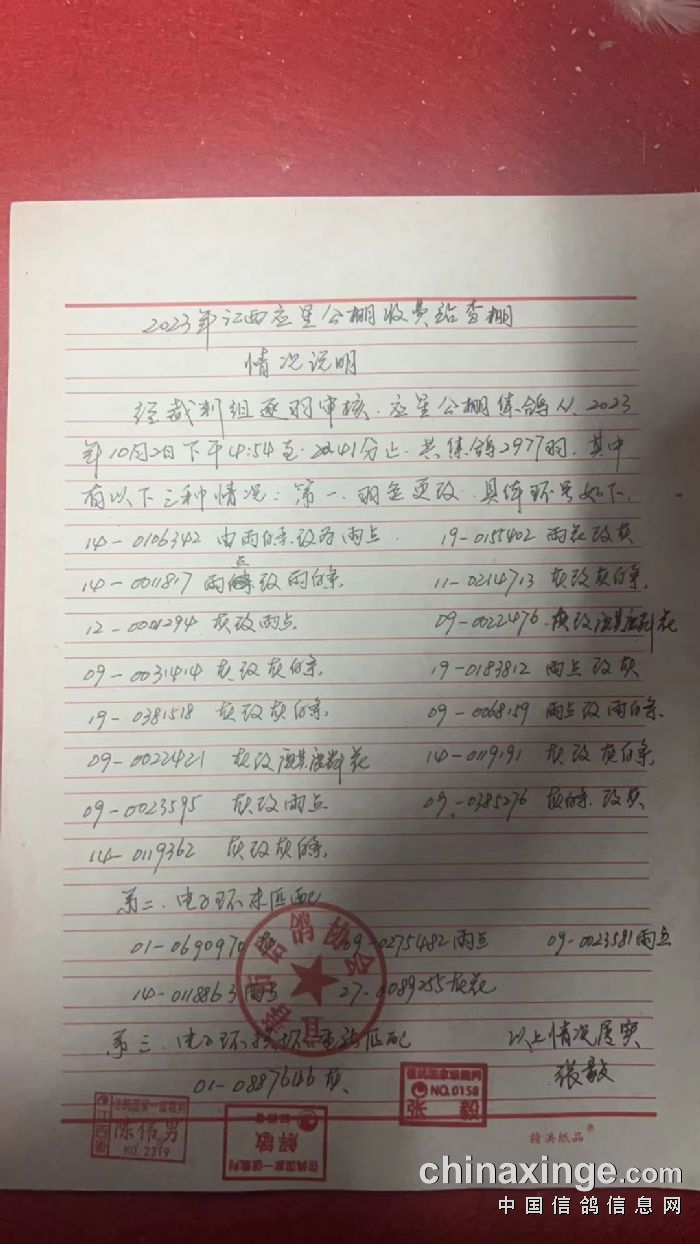 2023年江西应星公棚收费站查棚
情况说明
经裁判组逐羽审核.应星公棚集鸽从.2023
年10月2日下午4:54至 41分止.共集鸽2977羽.其中
有以下三种情况：第一.羽色更改.具体环号如下.
14-0106342 由雨白条改为雨点. 19-0155402 雨花改灰
14-0011817 雨点改雨白条. 11-0214713 灰改灰白条.
12-0011294 灰改雨点. 09-0022476 灰改麒麟花
09-0031414 灰改灰白条. 19-0183812 雨点改灰
19-0381518 灰改灰白条. 09-0068159 雨点改雨白条.
09-0022421 灰改麒麟花 14-0119191 灰改灰白条.
09-0023595 灰改雨点 09-0385276 灰白条改灰
14-0119362 灰改灰白条.
第二.电子环未匹配
01-0690970 69-0275482 雨点 09-0023581 雨点
14-0118863 雨点 27-0089255 灰花
第三.电子环损坏重新匹配 以上情况属实
01-0887646 灰. 张毅
信鸽协会
信鸽国家一级裁判
江西省
陈伟男
NO.2319
江西省
解敏
信鸽国家一级裁判
信鸽国家级裁判
NO.0158
张
精洪纸品®
chinaxinge.com
中国信鸽信息网